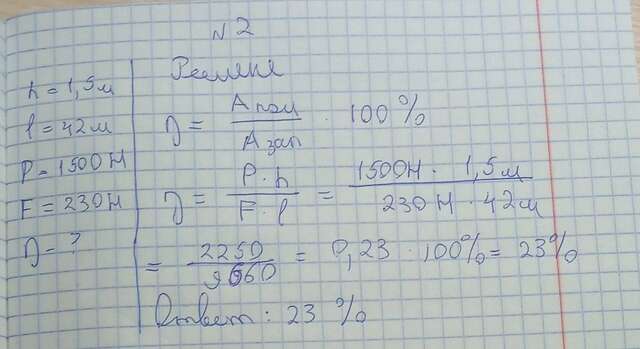 № 2
h = 1,5м
l = 42м
P = 1500Н
F = 230Н
η - ?
Решение
η = Aпол / Aзат · 100%
η = P·h / F·l = 1500Н · 1,5м / 230Н · 42м
= 2250 / 9660 = 0,23 · 100% = 23%
Ответ: 23 %